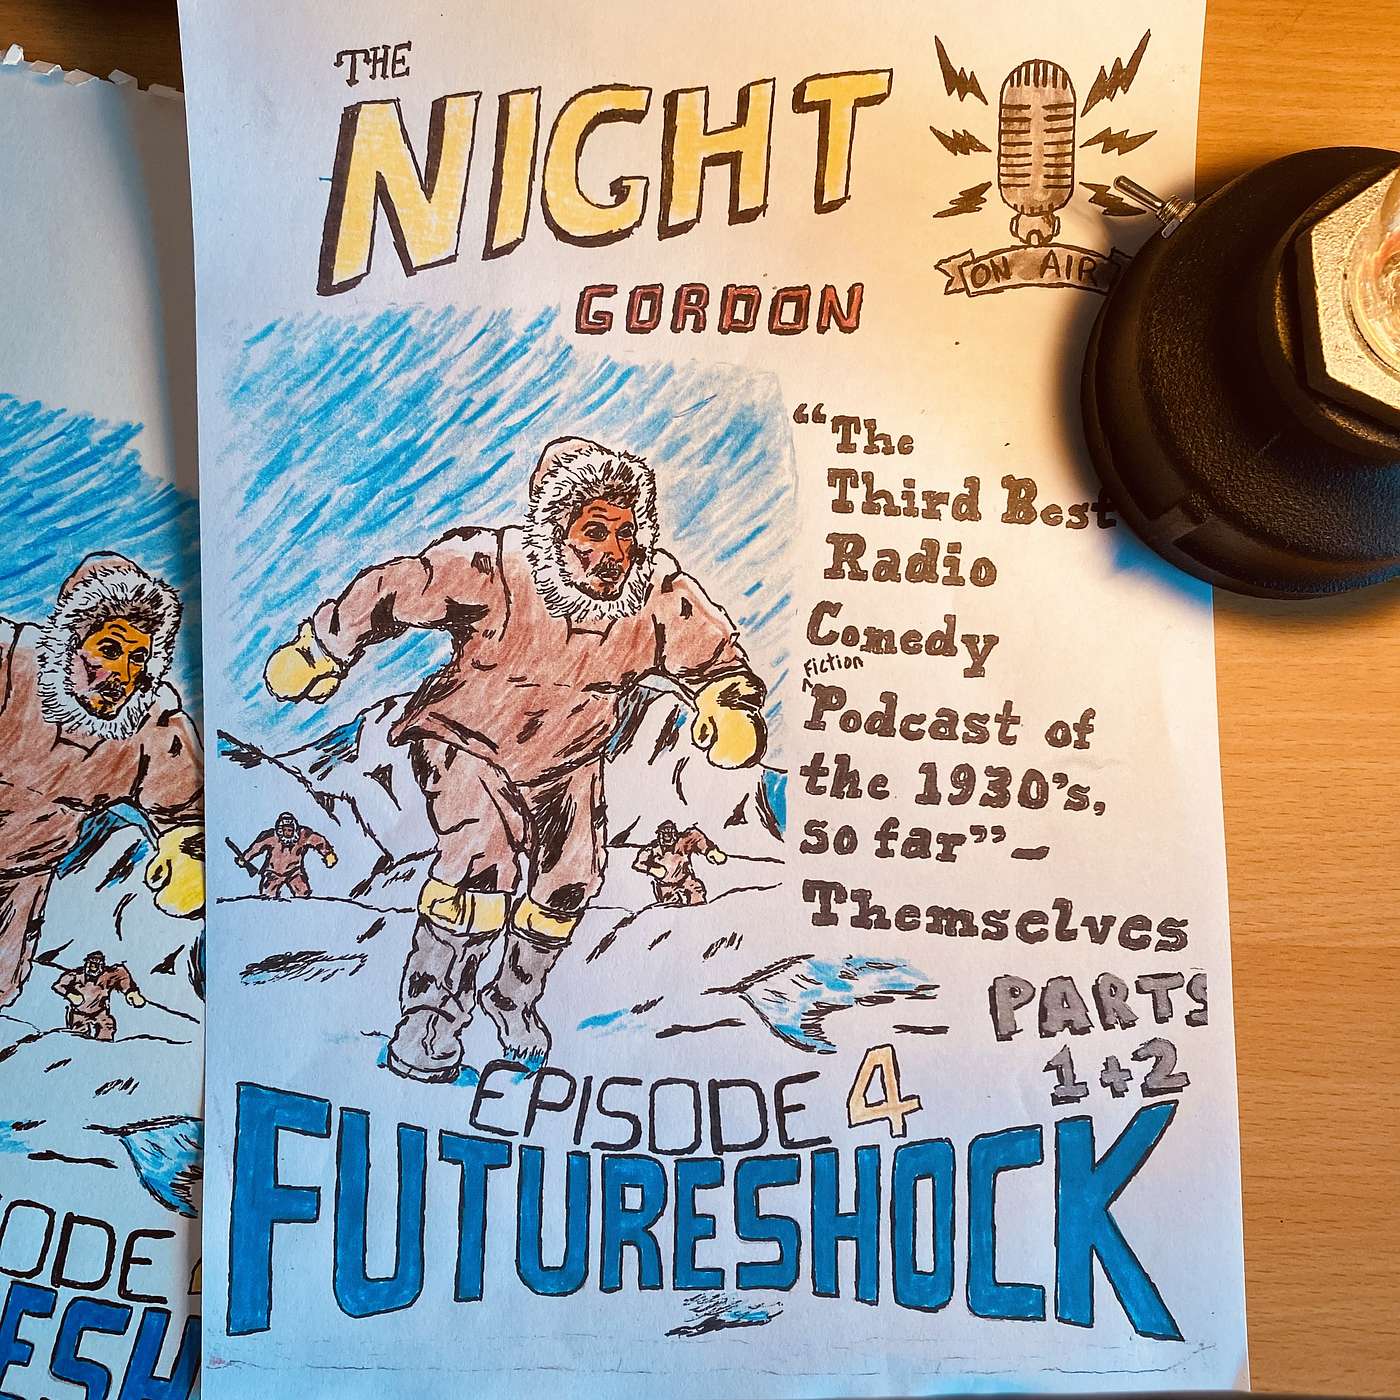 THE
NIGHT
GORDON
ON AIR
“The
Third Best
Radio
Comedy
Fiction
Podcast of
the 1930’s,
so far”–
Themselves
PARTS
1+2
EPISODE 4
FUTURESHOCK
ODE
ESH